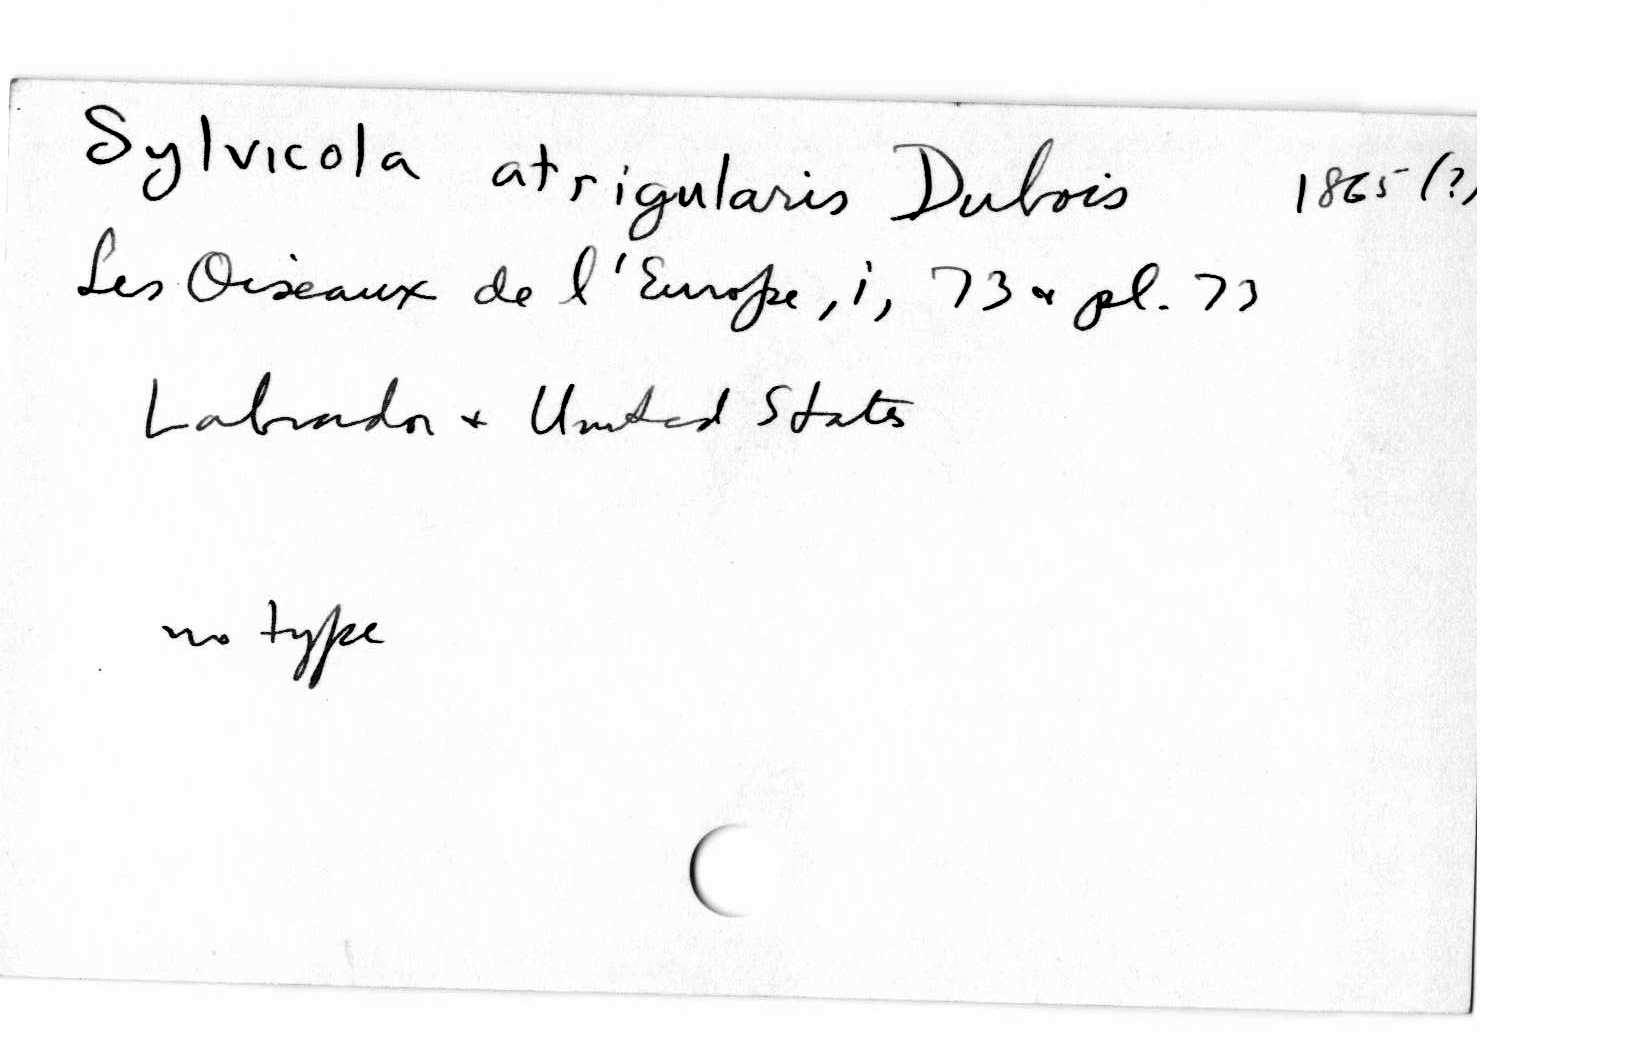 Sylvicola atrigularis Dubois 1865 (?)
Les Oiseaux de l'Europe, i, 73 & pl. 73
Labrador & United States
no type